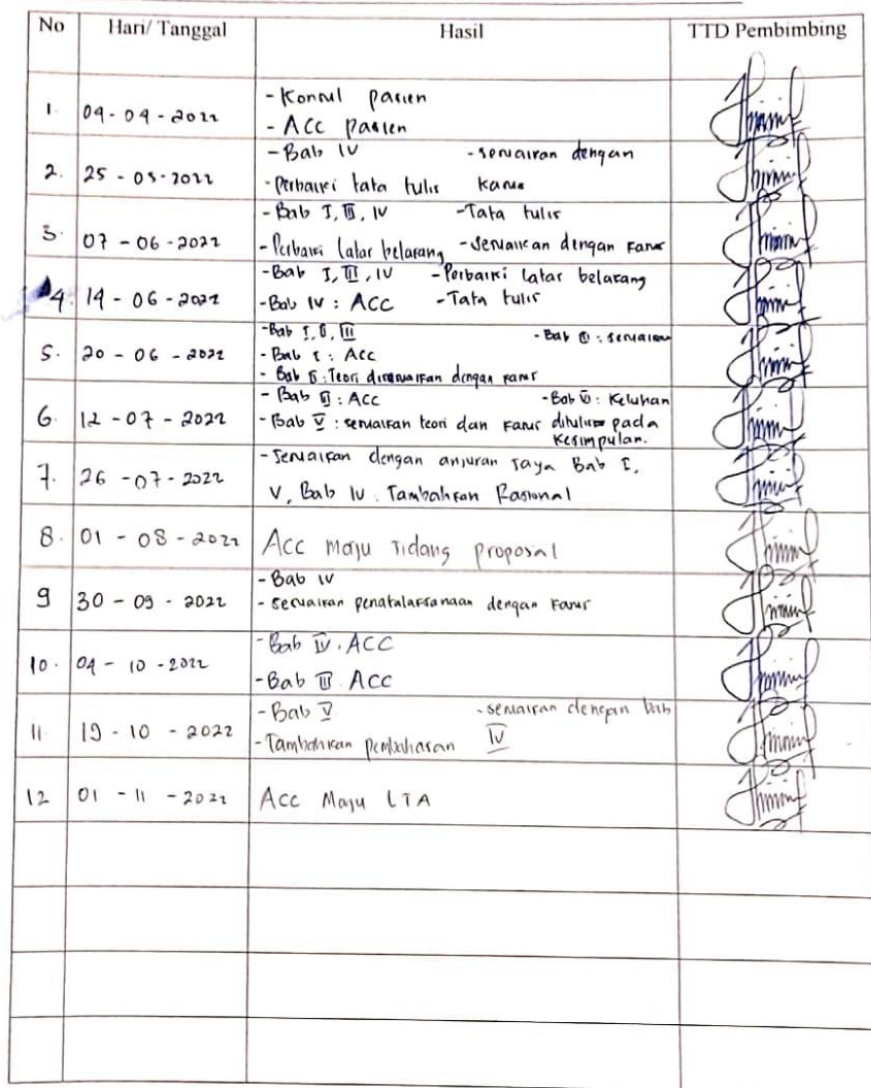 No Hari/ Tanggal Hasil TTD Pembimbing
1. 04 - 04 - 2022 - Konsul pasien
- ACC pasien
2. 25 - 05 - 2022 - Bab IV - sesuaikan dengan
- Perbaiki tata tulis kasus
3. 07 - 06 - 2022 - Bab I, III, IV - Tata tulis
- Perbaiki latar belakang - sesuaikan dengan kasus
4. 14 - 06 - 2022 - Bab I, III, IV - Perbaiki latar belakang
- Bab IV : ACC - Tata tulis
5. 20 - 06 - 2022 - Bab I, II, III - Bab : sesuaikan
- Bab I : ACC
- Bab II : Teori disesuaikan dengan kasus
6. 12 - 07 - 2022 - Bab : ACC - Bab : Keluhan
- Bab V : sesuaikan teori dan kasus ditulis pada
kesimpulan.
7. 26 - 07 - 2022 - Sesuaikan dengan anjuran saya Bab I,
V, Bab IV : Tambahkan Rasional
8. 01 - 08 - 2022 ACC Maju sidang proposal
9 30 - 09 - 2022 - Bab IV
- sesuaikan penatalaksanaan dengan kasus
10. 04 - 10 - 2022 - Bab IV. ACC
- Bab III. ACC
11. 19 - 10 - 2022 - Bab V - sesuaikan dengan bab
- Tambahkan pembahasan IV
12 01 - 11 - 2022 ACC Maju LTA